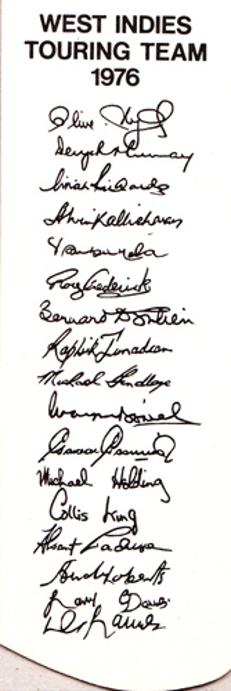 WEST INDIES
TOURING TEAM
1976
Clive Lloyd
Deryck Murray
Vivian Richards
Alvin Kallicharran
Roy Fredericks
Bernard Julien
Raphick Jumadeen
Michael Findlay
Wayne Daniel
Michael Holding
Collis King
Albert Padmore
Andy Roberts
Larry Gomes